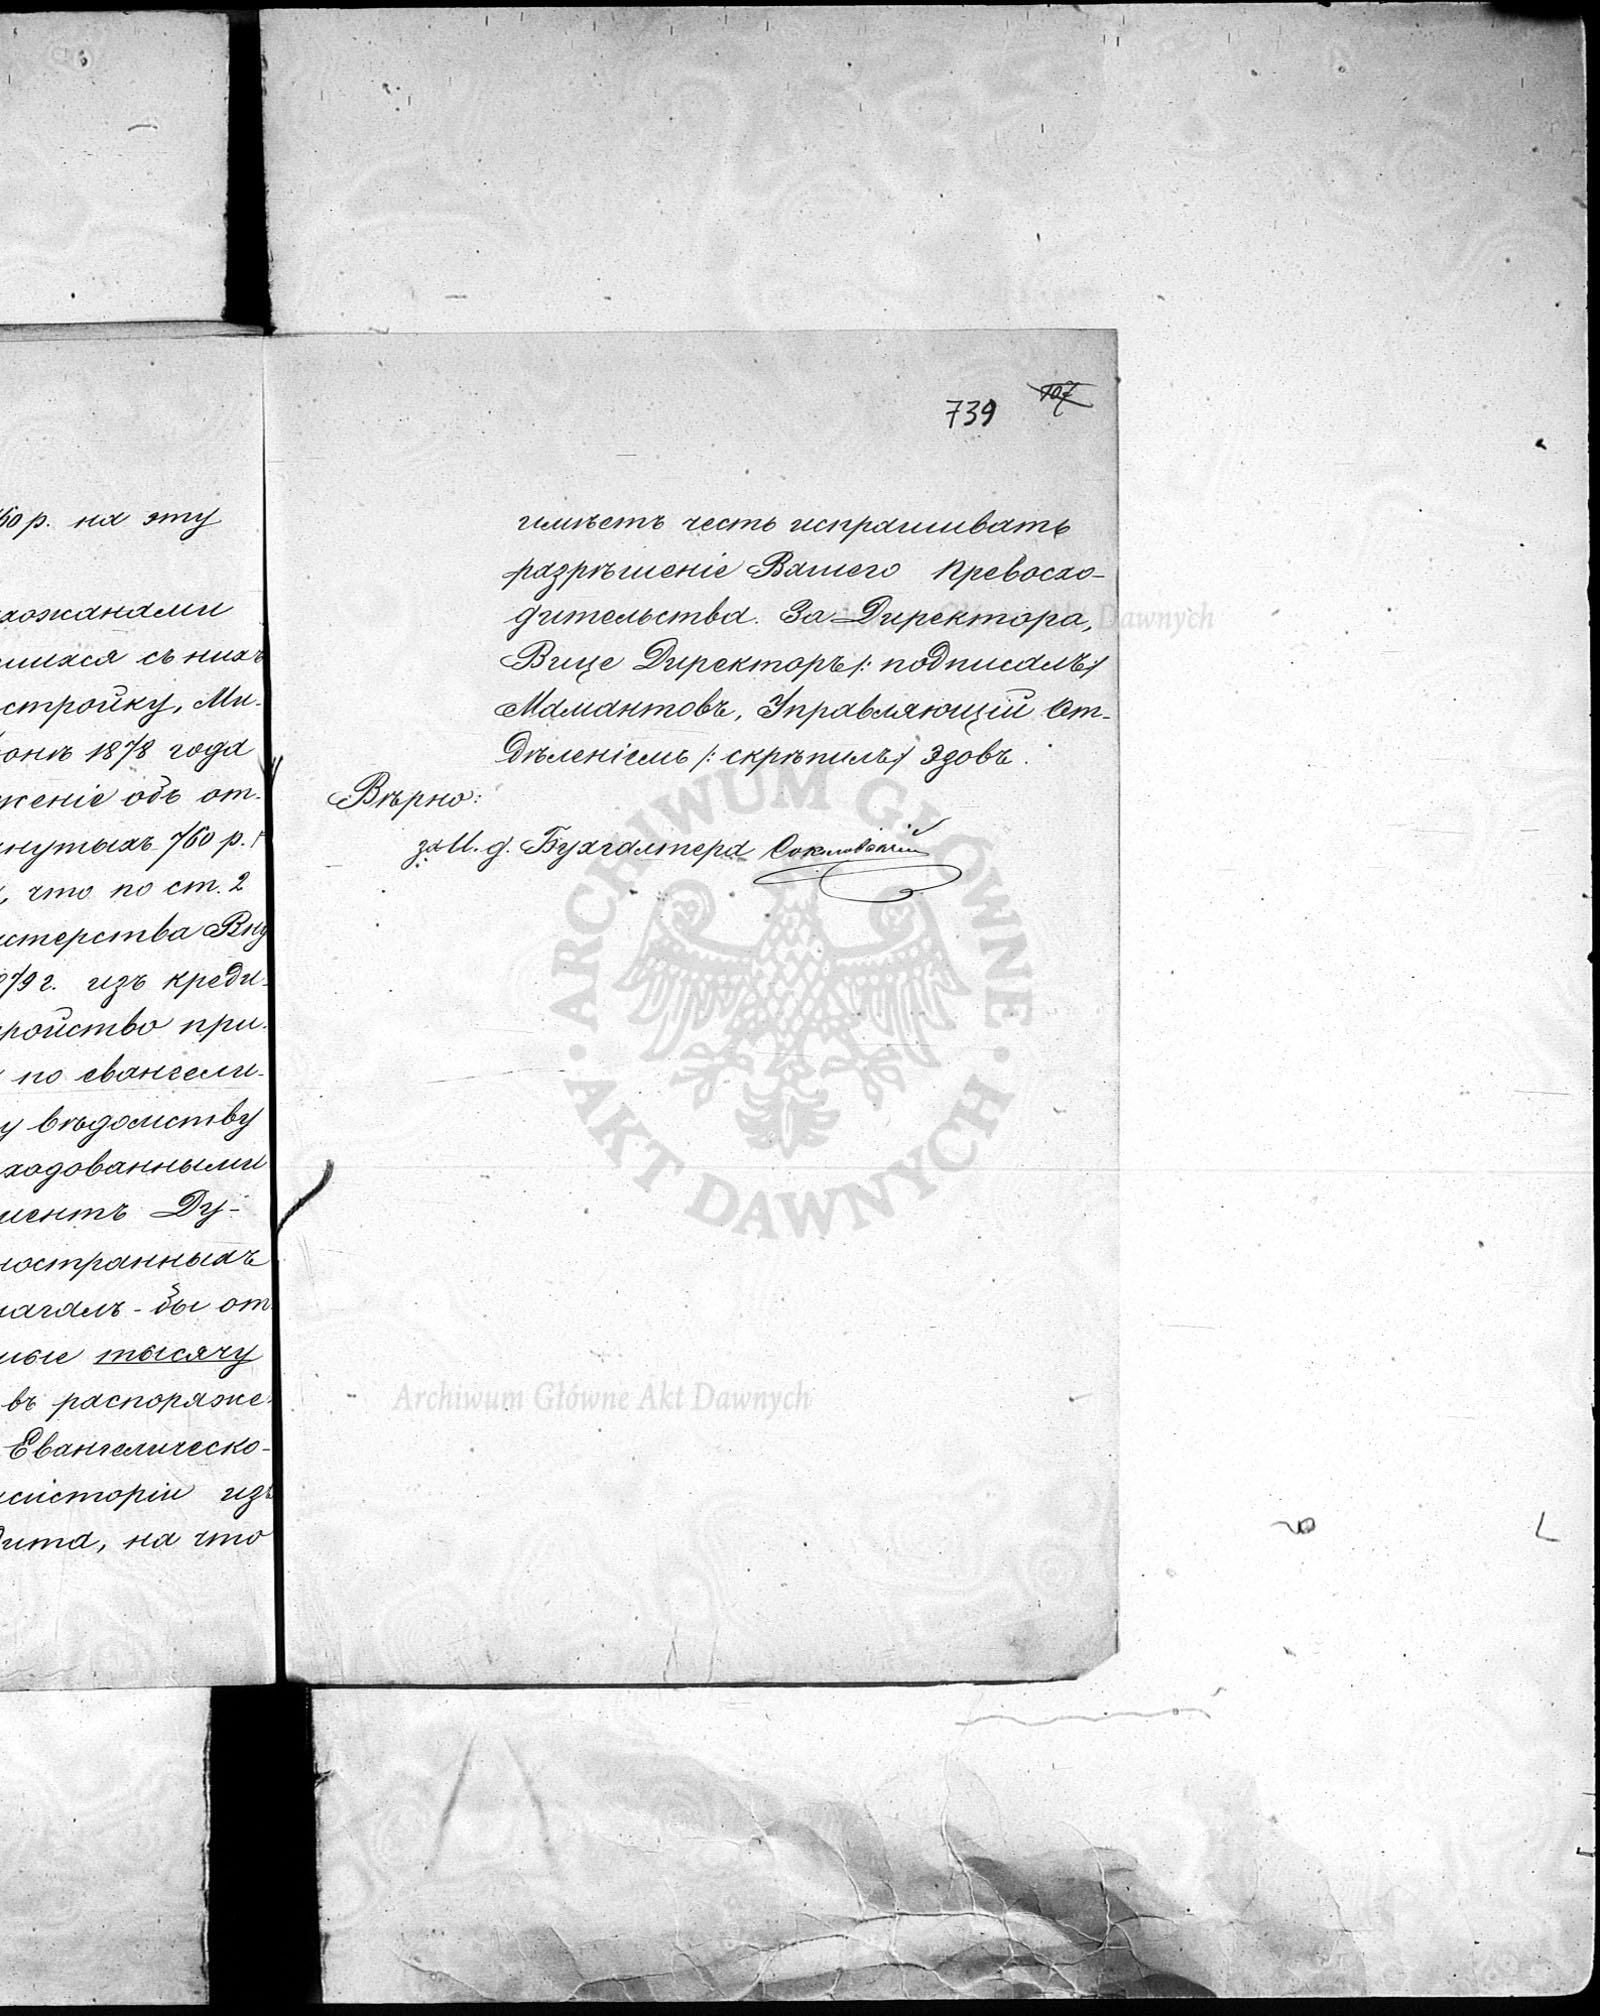 60 р. на эту
хожанами
шихся съ нихъ
стройку, Ми-
1878 года
женіе объ от-
нутыхъ 760 р.
, что по ст. 2
истерства Вну
79 г. изъ креди-
ройство при-
по евангели-
у вѣдомству
ходованными
ментъ Ду-
ностранныхъ
лагалъ-бы от-
ные тысячу
въ распоряже-
Евангелическо-
систоріи изъ
дита, на что
107
739
имѣетъ честь испрашивать
разрѣшеніе Вашего Превосхо-
дительства. За Директора,
Вице Директоръ /: подписалъ /
Мамантовъ, Управляющій От-
дѣленіемъ /: скрѣпилъ / Эзовъ.
Вѣрно:
за И. д. Бухгалтера
Archiwum Główne Akt Dawnych
ARCHIWUM GŁÓWNE
AKT DAWNYCH
Archiwum Główne Akt Dawnych